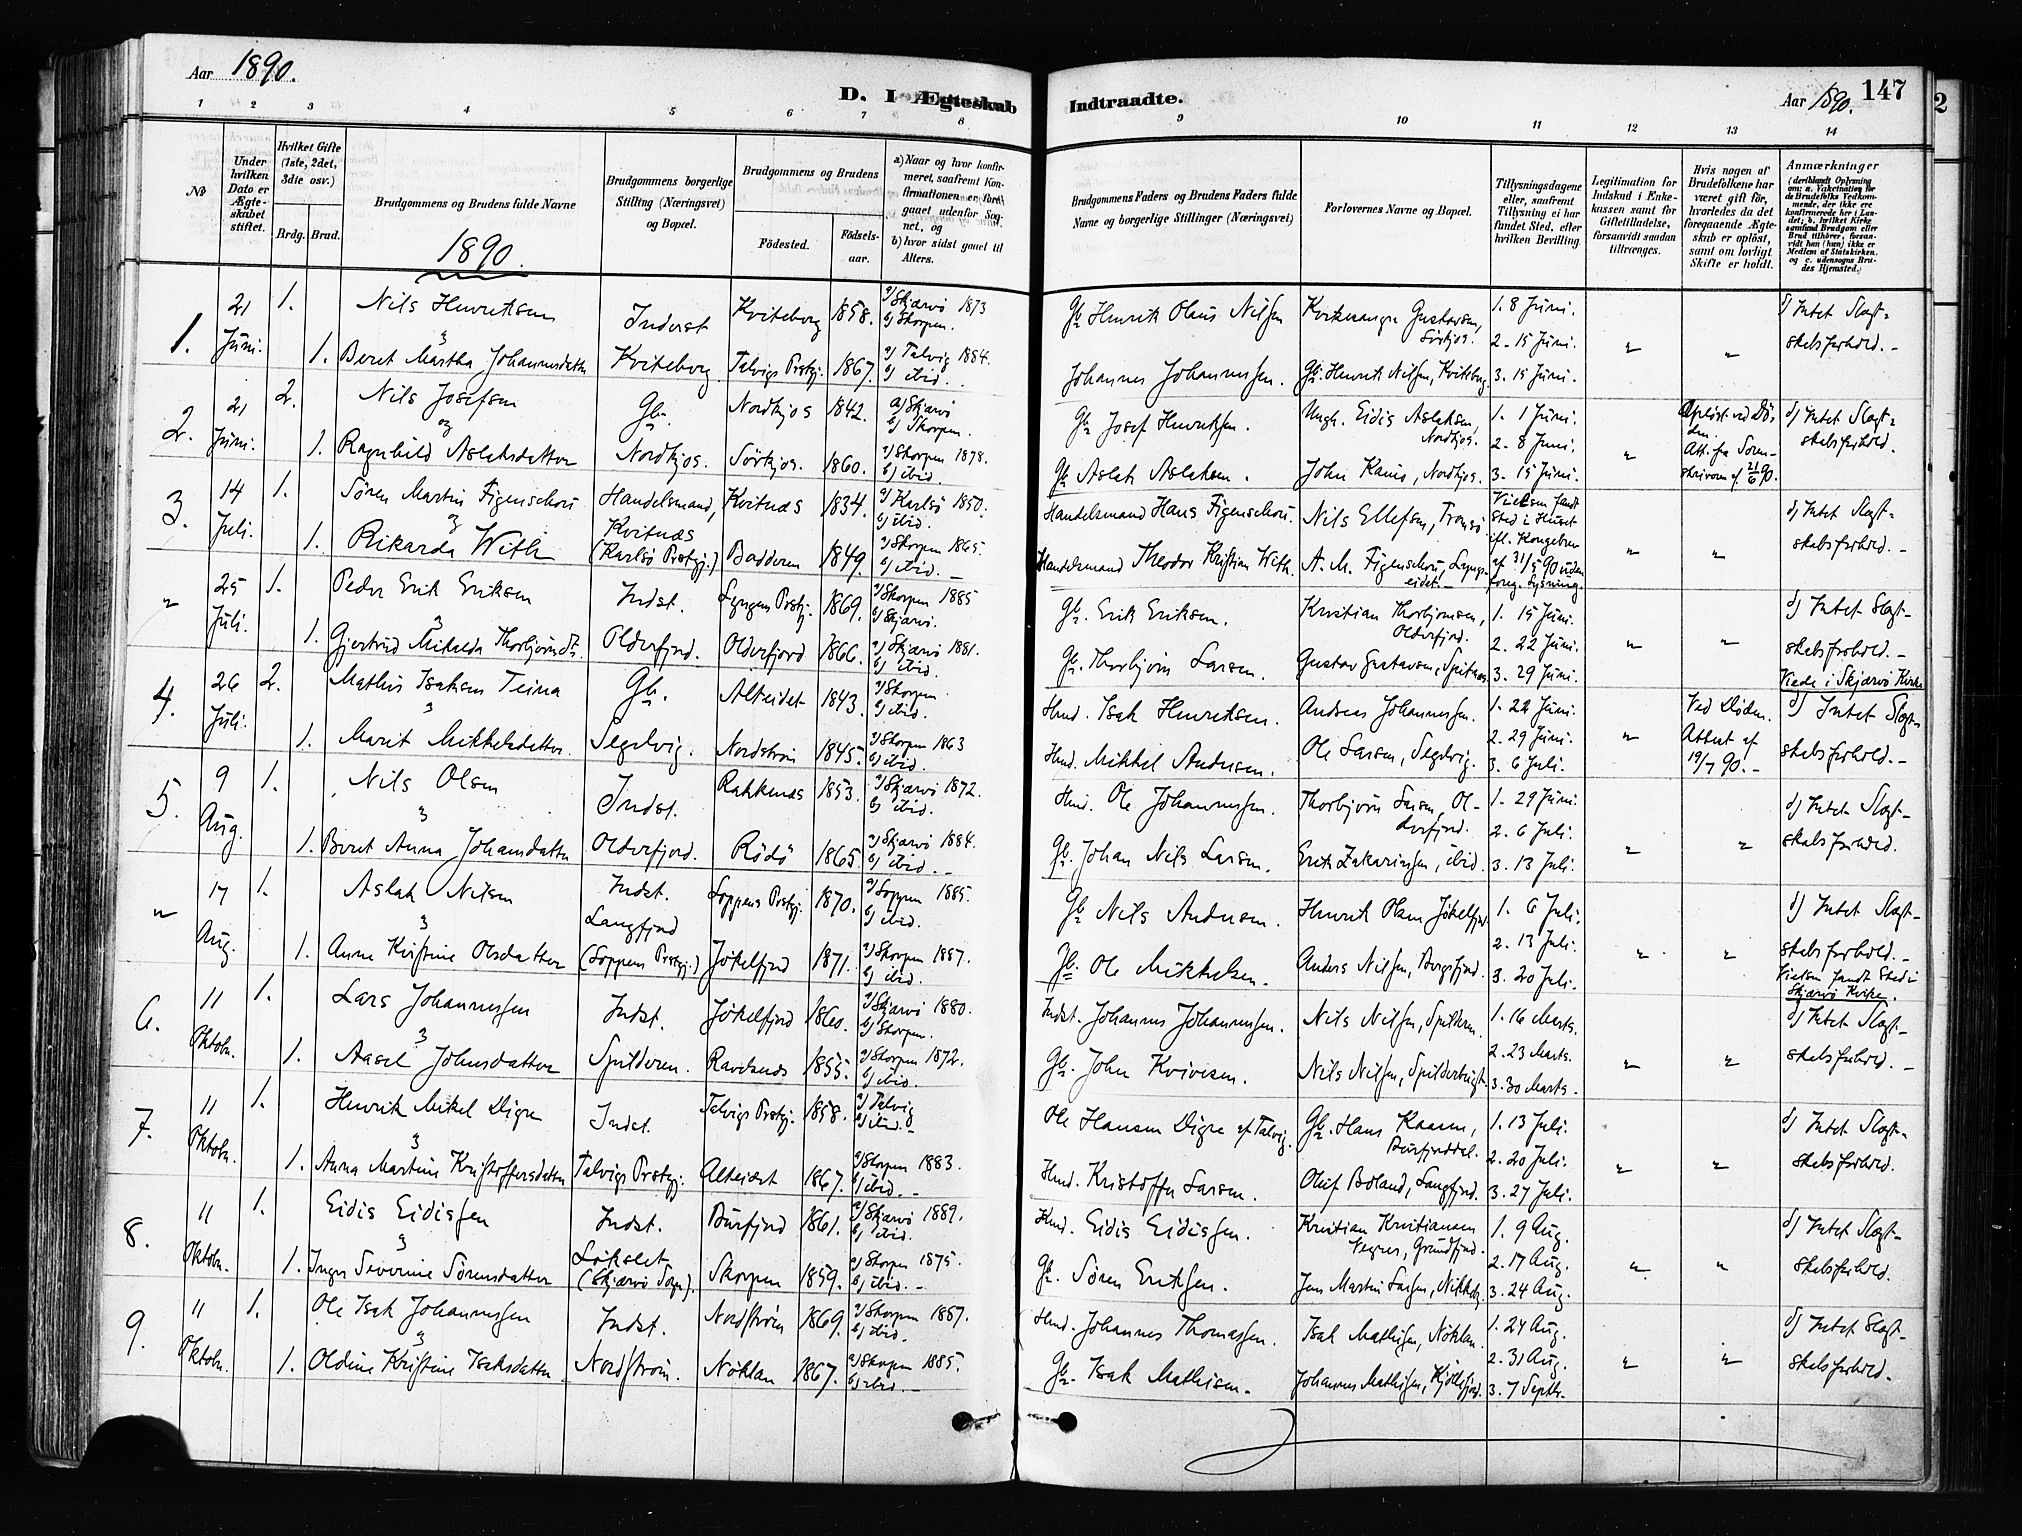 Aar 1890.
D. Indtraadte i Ægteskab
Indtraadte.
Aar 1890.
147
2
1 2 3 4 5 6 7 8 9 10 11 12 13 14
No
Under hvilken Dato er Ægteskabet stiftet.
Hvilket Gifte (1ste, 2det, 3die osv.)
Brdg. Brud.
Brudgommens og Brudens fulde Navne
Brudgommens borgerlige Stilling (Næringsvei) og Bopæl.
Brudgommens og Brudens
Fødested.
Fødselsaar.
a) Naar og hvor konfirmeret, saafremt Konfirmationen er foregaaet udenfor Sognet, og
b) hvor sidst gaaet til Alters.
Brudgommens Faders og Brudens Faders fulde Navne og borgerlige Stillinger (Næringsvei)
Forlovernes Navne og Bopæl.
Tillysningsdagene eller, saafremt Tillysning ei har fundet Sted, efter hvilken Bevilling.
Legitimation for Indskud i Enkekassen samt for Giftetilladelse, forsaavidt saadan tiltrænges.
Hvis nogen af Brudefolkene har været gift før, hvorledes da det foregaaende Ægteskab er opløst, samt om lovligt Skifte er holdt.
Anmærkninger
1890.
1. 21 Juni. 1. Nils Henriksen Inderst Kviteberg 1858. a) Skjærvö 1873 b) Skorpen. Gbr Henrik Olaus Nilsen 1. 8 Juni. d) Intet Slægt-
1. Beret Martha Johannesdatter Kviteberg. Talvigs Prstgj. 1867. a) Talvig 1884. b) ibid. Johannes Johannessen. Gbr. Henrik Nilsen, Kviteberg 2. 15 Juni. 3. 15 Juni. skabsforhold.
2. 21 Juni. 2. Nils Josefsen og Gbr. Nordkjos 1842. a) Skjærvö b) Skorpen. Gbr Josef Henriksen. Ungk. Eidis Aslaksen, Nordkjos. 1. 1 Juni. 2. 8 Juni. Opløst ved Döden. d) Intet Slægt-
1. Ragnhild Aslaksdatter Nordkjos. Sörkjos. 1860. a) Skorpen 1878. b) ibid. Gbr Aslak Aslaksen. 3. 15 Juni. Att. fra Sorenskriveren af 21/6 90. skabsforhold.
3. 14 Juli. 1. Sören Martin Figenschou og Handelsmand, Kvitnæs 1834. a) Karlsö 1850. b) ibid. Handelsmand Hans Figenschou. Nils Ellefsen, Tromsö Vielsen fandt Sted i Huset d) Intet Slægt-
1. Rikarda With Kvitnæs (Karlsö Prstgj.) Badderen 1849. a) Skorpen 1865. b) ibid. Handelsmand Theodor Kristian With. A. M. Figenschou, Lyngseidet ifl. Kongebrev af 31/5 90 uden foreg. Lysning. skabsforhold.
" 25 Juli. 1. Peder Erik Eriksen Indst. Lyngens Prstgj. 1869. a) Skorpen 1885 b) Skjærvö. Gbr. Erik Eriksen. Kristian Thorbjornsen, Olderfjord. 1. 15 Juni. 2. 22 Juni. d) Intet Slægt-
1. Gjertrud Mikalda Thorbjörnsdtr. Olderfjord. Olderfjord 1866. a) Skjærvö 1881. b) ibid. Gbr. Thorbjörn Larsen. Gustav Gustavsen, 3. 29 Juni. skabsforhold. Viede i Skjærvö Kirke
4. 26 Juli. 2. Mathis Isaksen Teina Gbr. Alteidet 1843. a) Skorpen. b) ibid. Hmd. Isak Henriksen. Andreas Johannessen. 1. 22 Juni. 2. 29 Juni. Ved Döden. d) Intet Slægt-
1. Marit Mikkelsdatter Segelvig. Nordström 1845. a) Skorpen 1863 b) ibid. Hmd. Mikkel Andersen. Ole Larsen, Segelvig. 3. 6 Juli. Attest af 19/7 90. skabsforhold.
5. 9 Aug. 1. Nils Olsen Indst. Rakkenæs 1853. a) Skjærvö 1872. b) ibid. Hmd. Ole Johannessen. Thorbjörn Larsen, Olderfjord. 1. 29 Juni. 2. 6 Juli. d) Intet Slægt-
1. Beret Anna Johansdatter Olderfjord. Rödö 1865. a) Skjærvö 1884. b) ibid. Gbr. Johan Nils Larsen. Erik Zakariassen, ibid. 3. 13 Juli. skabsforhold.
" 17 Aug. 1. Aslak Nilsen Indst. Loppens Prstgj. 1870. a) Loppen 1885. b) ibid. Gbr Nils Andersen. Henrik Olsen Jökelfjord 1. 6 Juli. 2. 13 Juli. d) Intet Slægt-
1. Anne Kristine Olsdatter Langfjord (Loppens Prstgj.) Jökelfjord 1871. a) Skorpen 1887. b) ibid. Gbr. Ole Mikkelsen. Anders Nilsen, Bergsfjord. 3. 20 Juli. skabsforhold. Vielsen fandt Sted i Skjærvö Kirke.
6. 11 Oktobr. 1. Lars Johannessen Indst. Jökelfjord 1860. a) Skjærvö 1880. b) Skorpen. Indst. Johannes Johannessen. Nils Nilsen, Spilderen. 1. 16 Marts. 2. 23 Marts. d) Intet Slægt-
1. Aasel Johnsdatter Spilderen. 1855. a) Skorpen 1872. b) ibid. Gbr. John Nils Nilsen, 3. 30 Marts. skabsforhold.
7. 11 Oktobr. 1. Henrik Mikel Digre Indst. Talvigs Prstgj. 1858. a) Talvig b) ibid. Ole Hansen Digre af Talvig. Gbr. Hans Burfjorddal. 1. 13 Juli. 2. 20 Juli. d) Intet Slægt-
1. Anna Martine Kristoffersdatter Talvigs Prstgj. Alteidet 1867. a) Skorpen 1883. b) ibid. Hmd. Kristoffer Larsen. Oluf Boland, Langfjord. 3. 27 Juli. skabsforhold.
8. 11 Oktobr. 1. Eidis Eidissen Indst. Burfjord 1861. a) Skjærvö 1889. b) ibid. Hmd. Eidis Eidissen. Kristian Kristiansen Grundfjord. 1. 9 Aug. 2. 17 Aug. d) Intet Slægt-
1. Inger Severine Sörensdatter Lökslet (Skjærvö Sogn). Skorpen 1859. a) Skorpen 1875. b) ibid. Gbr. Sören Eriksen. Jens Martin Larsen, 3. 24 Aug. skabsforhold.
9. 11 Oktobr. 1. Ole Isak Johannessen Indst. Nordström 1869. a) Skorpen 1887. b) ibid. Hmd. Johannes Thomassen. Isak Mathisen, Nöklan. 1. 24 Aug. 2. 31 Aug. d) Intet Slægt-
1. Oldine Kristine Isaksdatter Nordström. Nöklan 1867. a) Skorpen 1885. b) ibid. Gbr. Isak Mathisen. Johannes Mathisen, 3. 7 Septbr. skabsforhold.